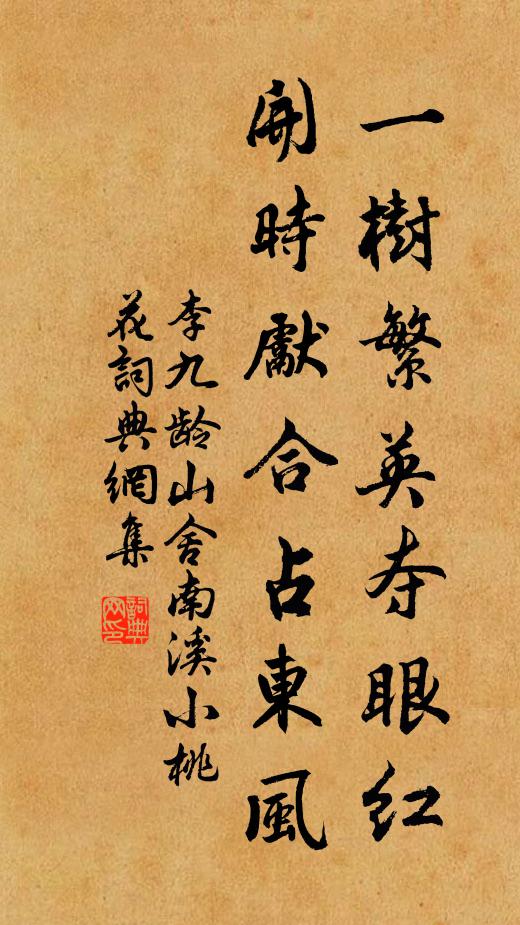 一樹繁英夺眼红
開時獻合占東風
李九龄山舍南溪小桃
花詞典網集
詞典
网印